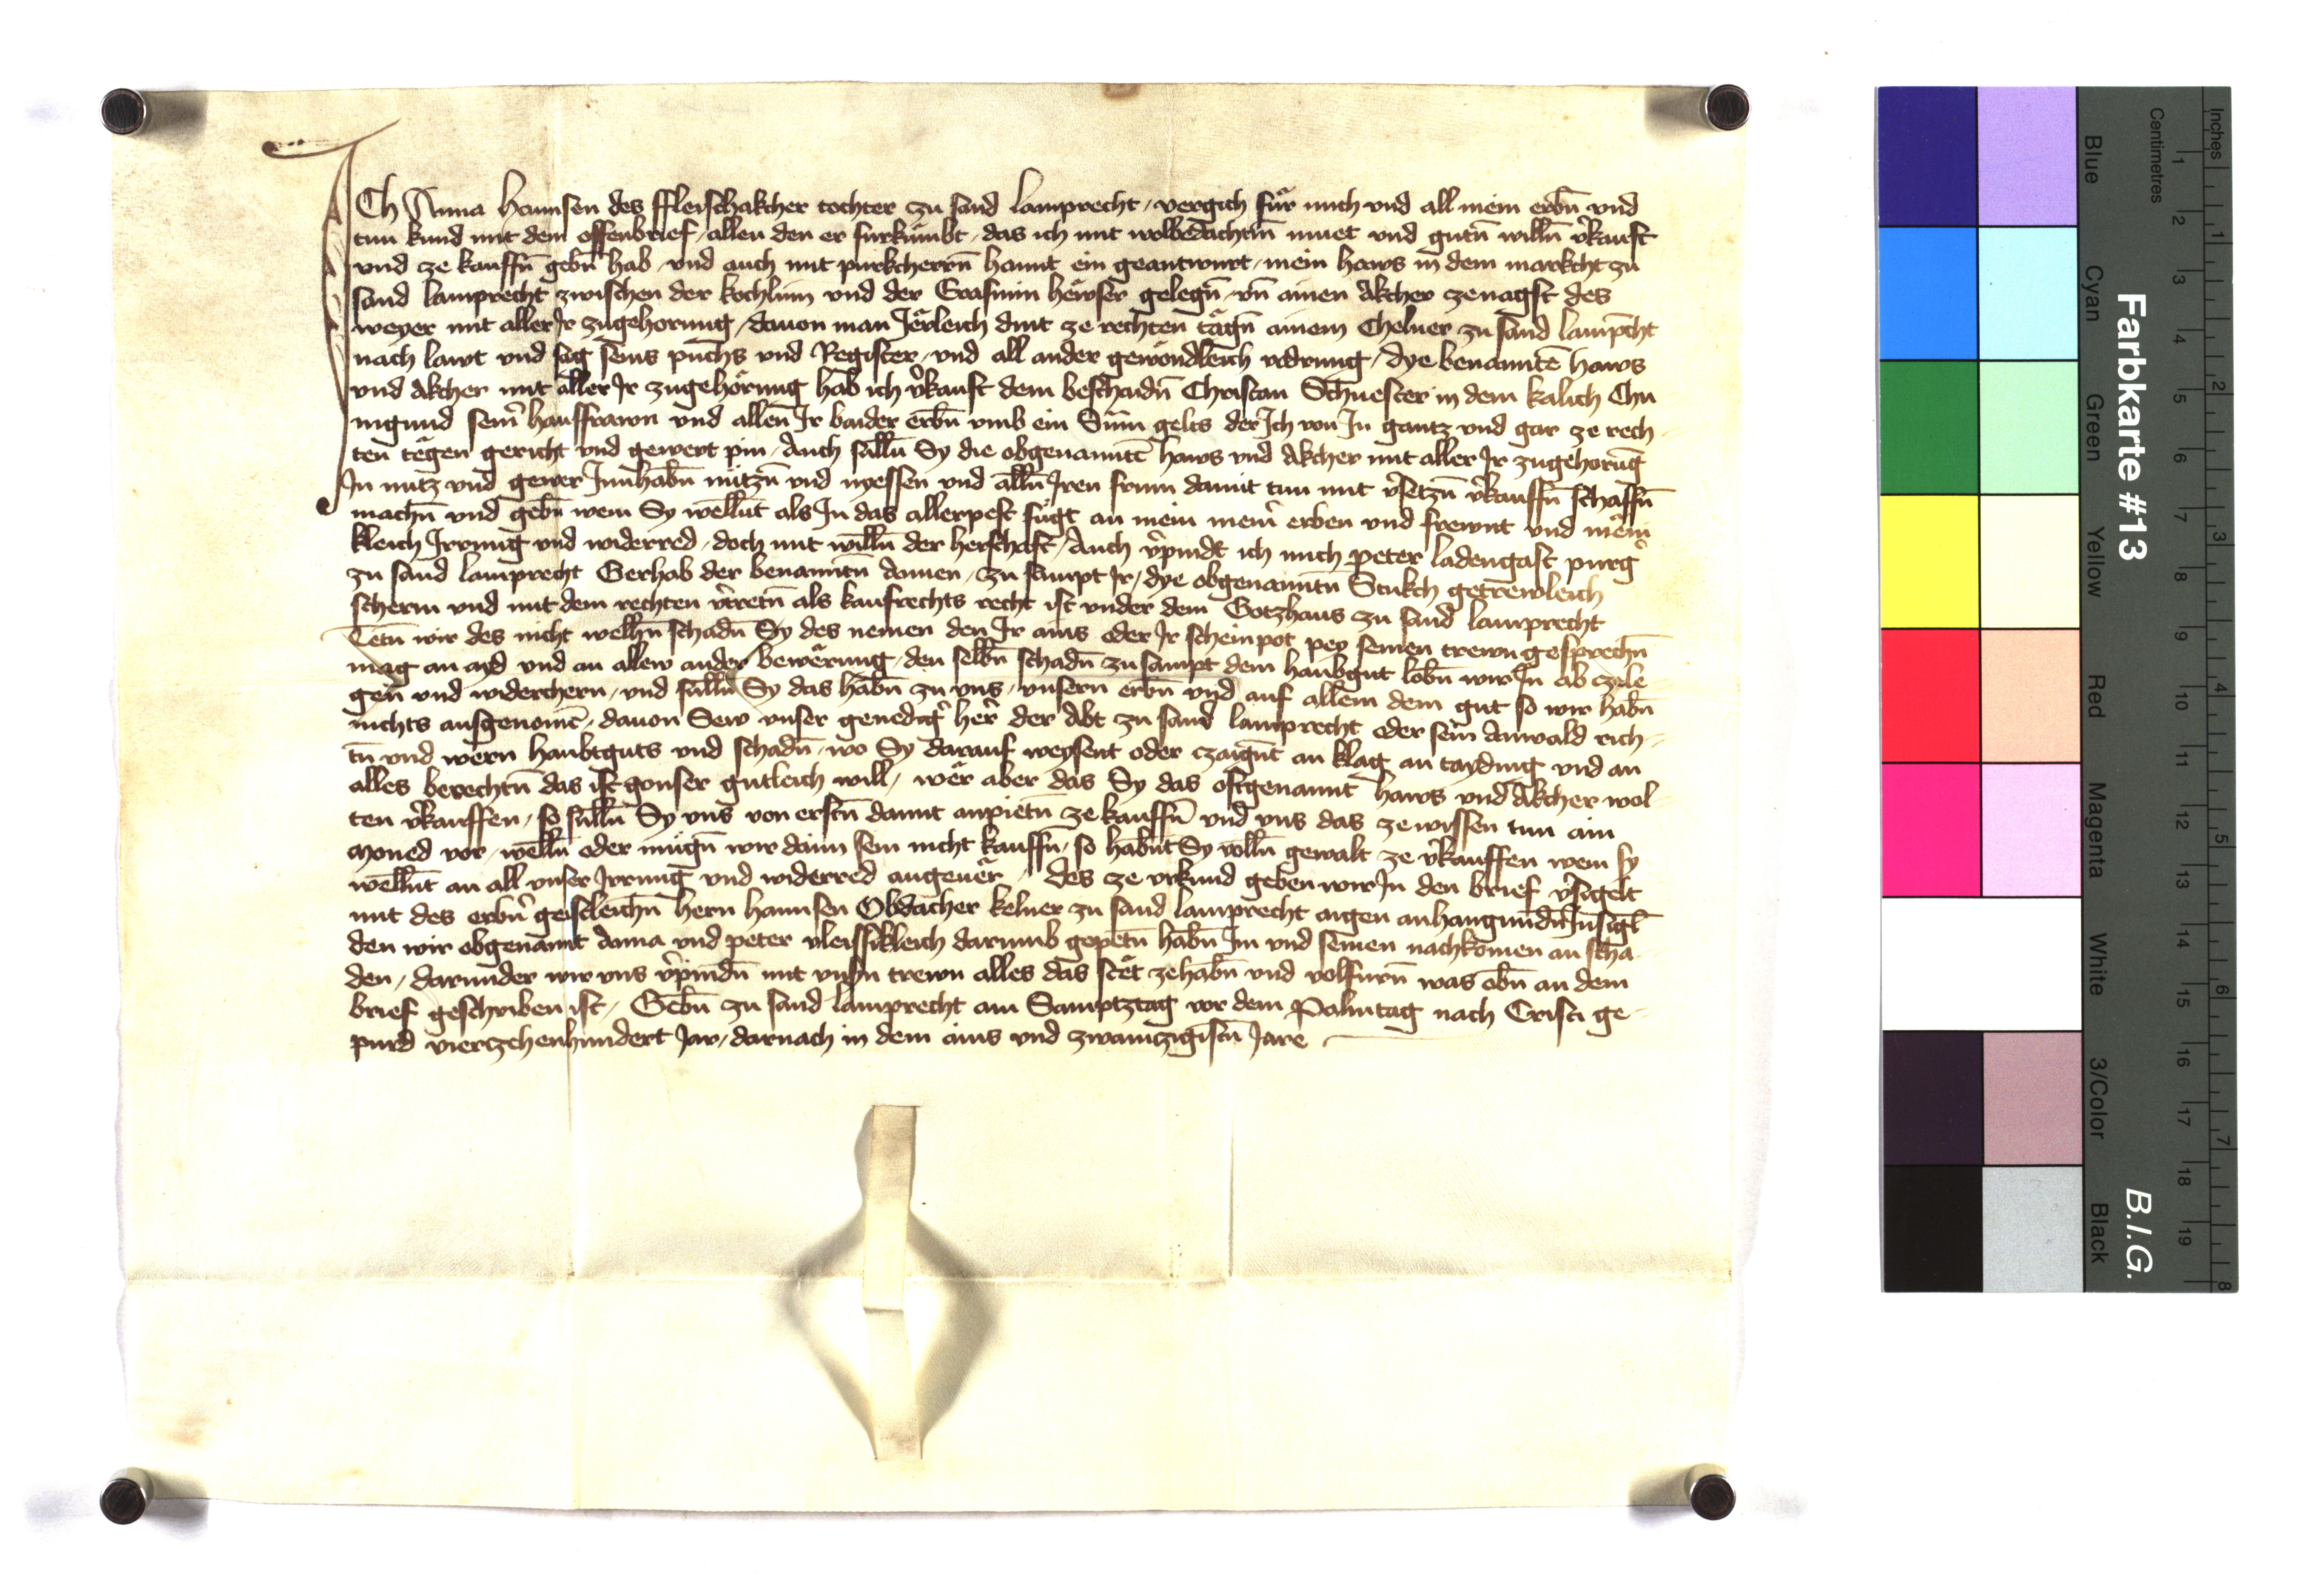 ICh Anna hannsen des ffleischakcher tochter zu sand lamprecht, vergich für mich vnd all mein erbn̄ vnd
tun kund mit dem offenbrief, allen den er fürkumbt, das ich mit wolbedachtm̄ muet vnd gutn̄ willn̄ v̾kauft
vnd ze kauffn̄ gebn̄ hab, vnd auch mit purkcherrn̄ hannt ein geantwurt, mein haws in dem markcht zu
sand lamprecht zwischen der kochlnn̄ vnd der Grasnnn hewser gelegn̄, vn̄ ainen Akcher zenagst des
weyer mit aller Jr zugehorung, dauon man Jërleich dint ze rechten tägn̄ ainem Chelner zu sand lamp̄cht
nach lawt vnd sag seins pūchs vnd Register, vnd all ander gewöndleich vodrung, dye benanntē haws
vnd Akcher mit aller Jr zugehörung hab ich v̾kauft dem beschaidn̄ Christan Schuester in dem kalich Chu
nigund sein̄ hausfrawn vnd allen̄ Jr baider erbn̄ vmb ein Sum̄ gelts der Ich von Jn gantz vnd gar ze rech
ten tëgen gericht vnd gewert pin, Auch sulln̄ Sy die obgenanntē haws vnd Akcher mit aller Jr zugehorūg
Jn nutz vnd gewer Jnnhabn̄ nutzn̄ vnd nyessen vnd alln̄ Jren frum damit tun mit v̾setzn̄ v̾kauffn̄ schaffn̄
machn̄ vnd gebn̄ wem Sy welln̄t als Jn das allerpest fügt an mein mein̄ erben vnd frewnt vnd mën̄i
kleich Jrrung vnd widerred, doch mit willn̄ der herschaft, Auch v̾pindt ich mich peter ladengast purg̾
zu sand lamprecht Gerhab der benanntn̄ Annen, zu sampt Jr, dye obgenanntn̄ Stukch getrewleich
scherm vnd mit dem rechten v̾tretn̄ als kaufrechts recht ist vnder dem Gotzhaus zu sand lamprecht
Tetn̄ wir des nicht welhn̄ schadn̄ Sy des nemen den Jr ains oder Jr scheinpot pey seinen trewn gesprechn̄
mag an ayd vnd an allew ander bewërung, den selbn̄ schadn̄ zu sampt dem haubgut lobn̄ wir Jn ab czele
gen̄ vnd widerchern, vnd sulln̄ Sy das habn̄ zu vns, vnsern erbn̄ vnd auf allem dem gut so wir habn̄
nichts ausgenomē, dauon Sew vnser genedig̾ her̾ der Abt zu sand lamprecht oder sein Anwald rich
tn̄ vnd wern haubtguts vnd schadn̄, wo Sy darauf weysent oder czaign̄t an klag an tayding vnd an
alles berechtn̄ das ist gonser gutleich will, wër aber das Sy das oftgenannt haws vnd Akcher wol
ten v̾kauffen, so sulln̄ Sy vns von erstn̄ damit anpietn̄ ze kauffn̄ vnd vns das ze wissen tun ain
moned vor, welln̄ oder mugn̄ wir dann sein nicht kauffn̄, so habn̄t Sy volln̄ gewalt ze v̾kauffen wem sy
welln̄t an all vnser Jrrung vnd widerred angeuër, des ze vrkund geben wir Jn den brief v̾sigelt
mit des erbn̄ geistleichn̄ hern hannsen Obdacher kelner zu sand lamprecht aigen anhangundn̄ Jnsigl̄
den wir obgenannt Anna vnd peter vleissikleich darumb gepetn̄ habn̄ Im vnd seinen nachkomen an scha
den, darunder wir vns v̾pindn̄ mit vnsn̄ trewn alles das stët ze habn̄ vnd volfurn̄ was obn̄ an dem
brief geschriben ist, Gebn̄ zu sand lamprecht am Samptztag vor dem Palmtag nach Cristi ge
purd vierczehenhundert Jar, darnach in dem ains vnd zwainzigistn̄ Jare
Farbkarte #13
B.I.G.
Centimetres
Inches
Blue
Cyan
Green
Yellow
Red
Magenta
White
3/Color
Black
1 2 3 4 5 6 7 8 9 10 11 12 13 14 15 16 17 18 19
1 2 3 4 5 6 7 8